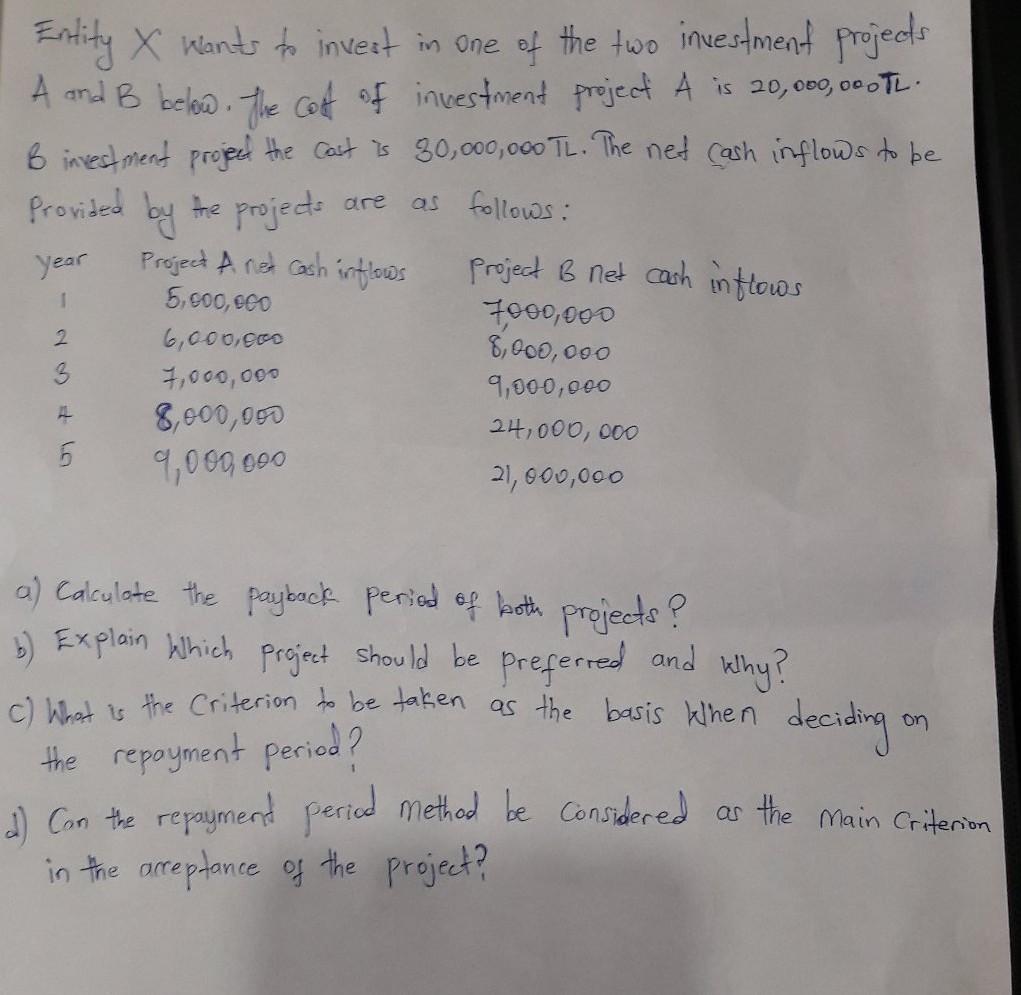 Entity X wants to invest in one of the two investment projects
A and B below. The cost of investment project A is 20,000,000 TL.
B investment project the cost is 30,000,000 TL. The net cash inflows to be
Provided by the projects are as follows:
year Project A net cash inflows Project B net cash inflows
1 5,000,000 7,000,000
2 6,000,000 8,000,000
3 7,000,000 9,000,000
4 8,000,000 24,000,000
5 9,000,000 21,000,000
a) Calculate the payback period of both projects?
b) Explain which project should be preferred and why?
c) What is the Criterion to be taken as the basis when deciding on
the repayment period?
d) Can the repayment period method be considered as the main criterion
in the acceptance of the project?